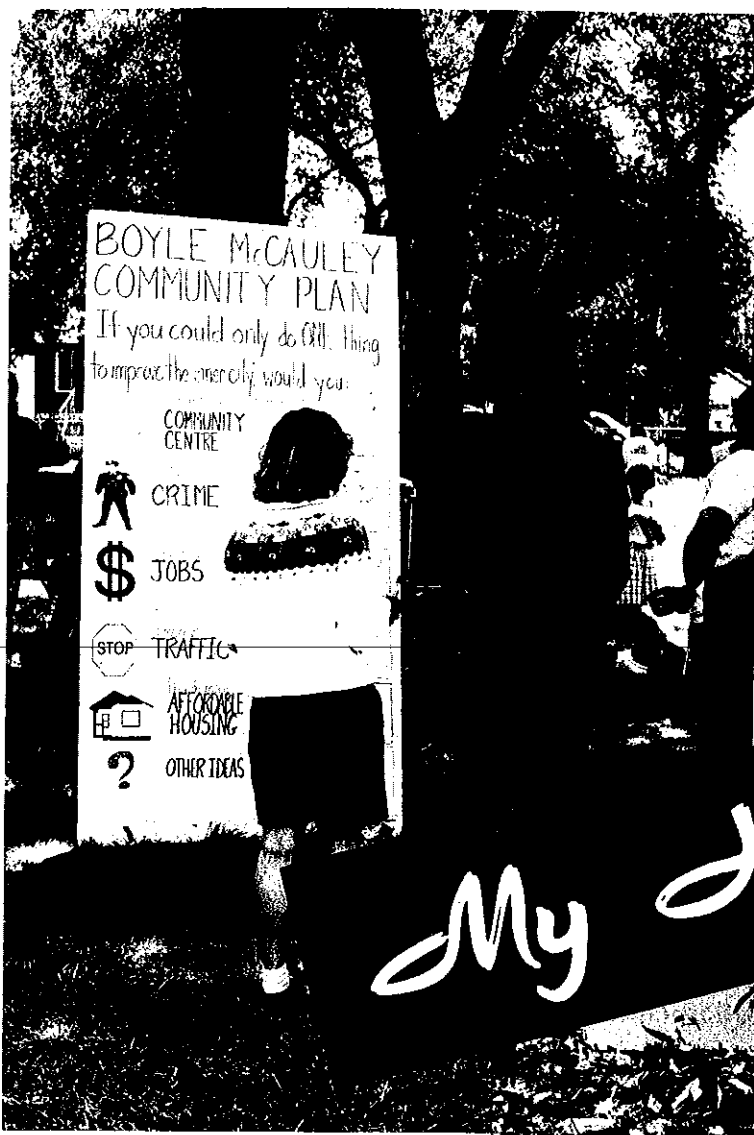 BOYLE McCAULEY
COMMUNITY PLAN
If you could only do ONE thing
to improve the inner city, would you:
COMMUNITY
CENTRE
CRIME
$ JOBS
STOP TRAFFIC
AFFORDABLE
HOUSING
? OTHER IDEAS
My